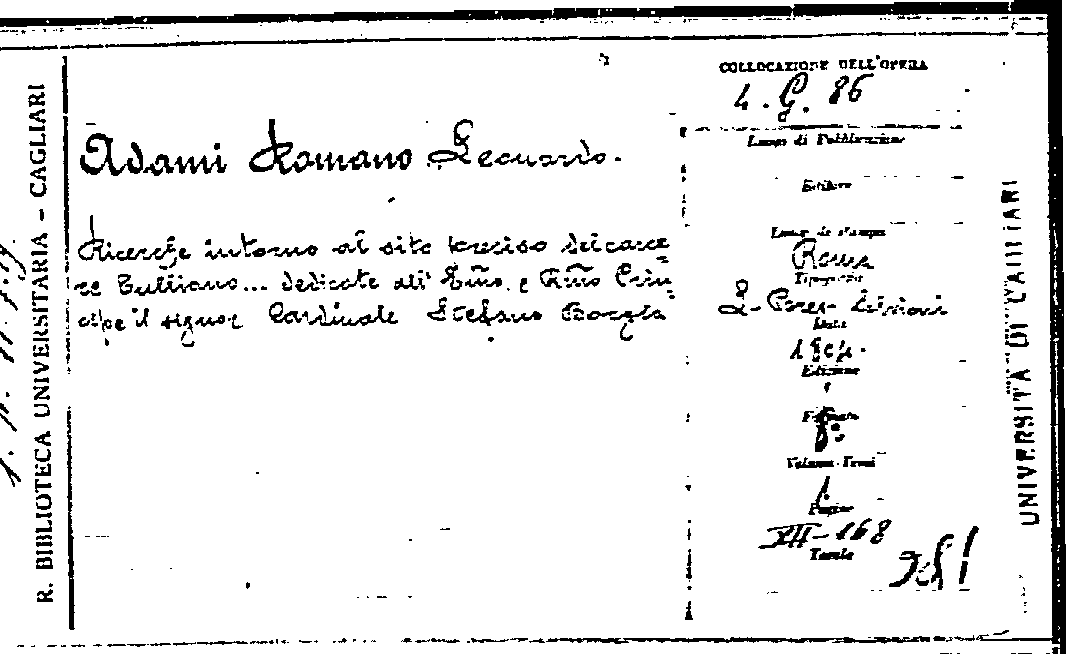 R. BIBLIOTECA UNIVERSITARIA - CAGLIARI
Adami Romano Leonardo.
Ricerche intorno al sito preciso del carce
re Tulliano... dedicate all' Emo. e Rmo Prin
cipe il signor Cardinale Stefano Borgia
COLLOCAZIONE DELL'OPERA
4. G. 86
Luogo di Pubblicazione
Editore
Luogo di stampa
Roma
Tipografia
Data
1804.
Edizione
Formato
8°
Volume-Tomi
1.
Pagine
XII-168
Tavole
UNIVERSITÀ DI CAGLIARI